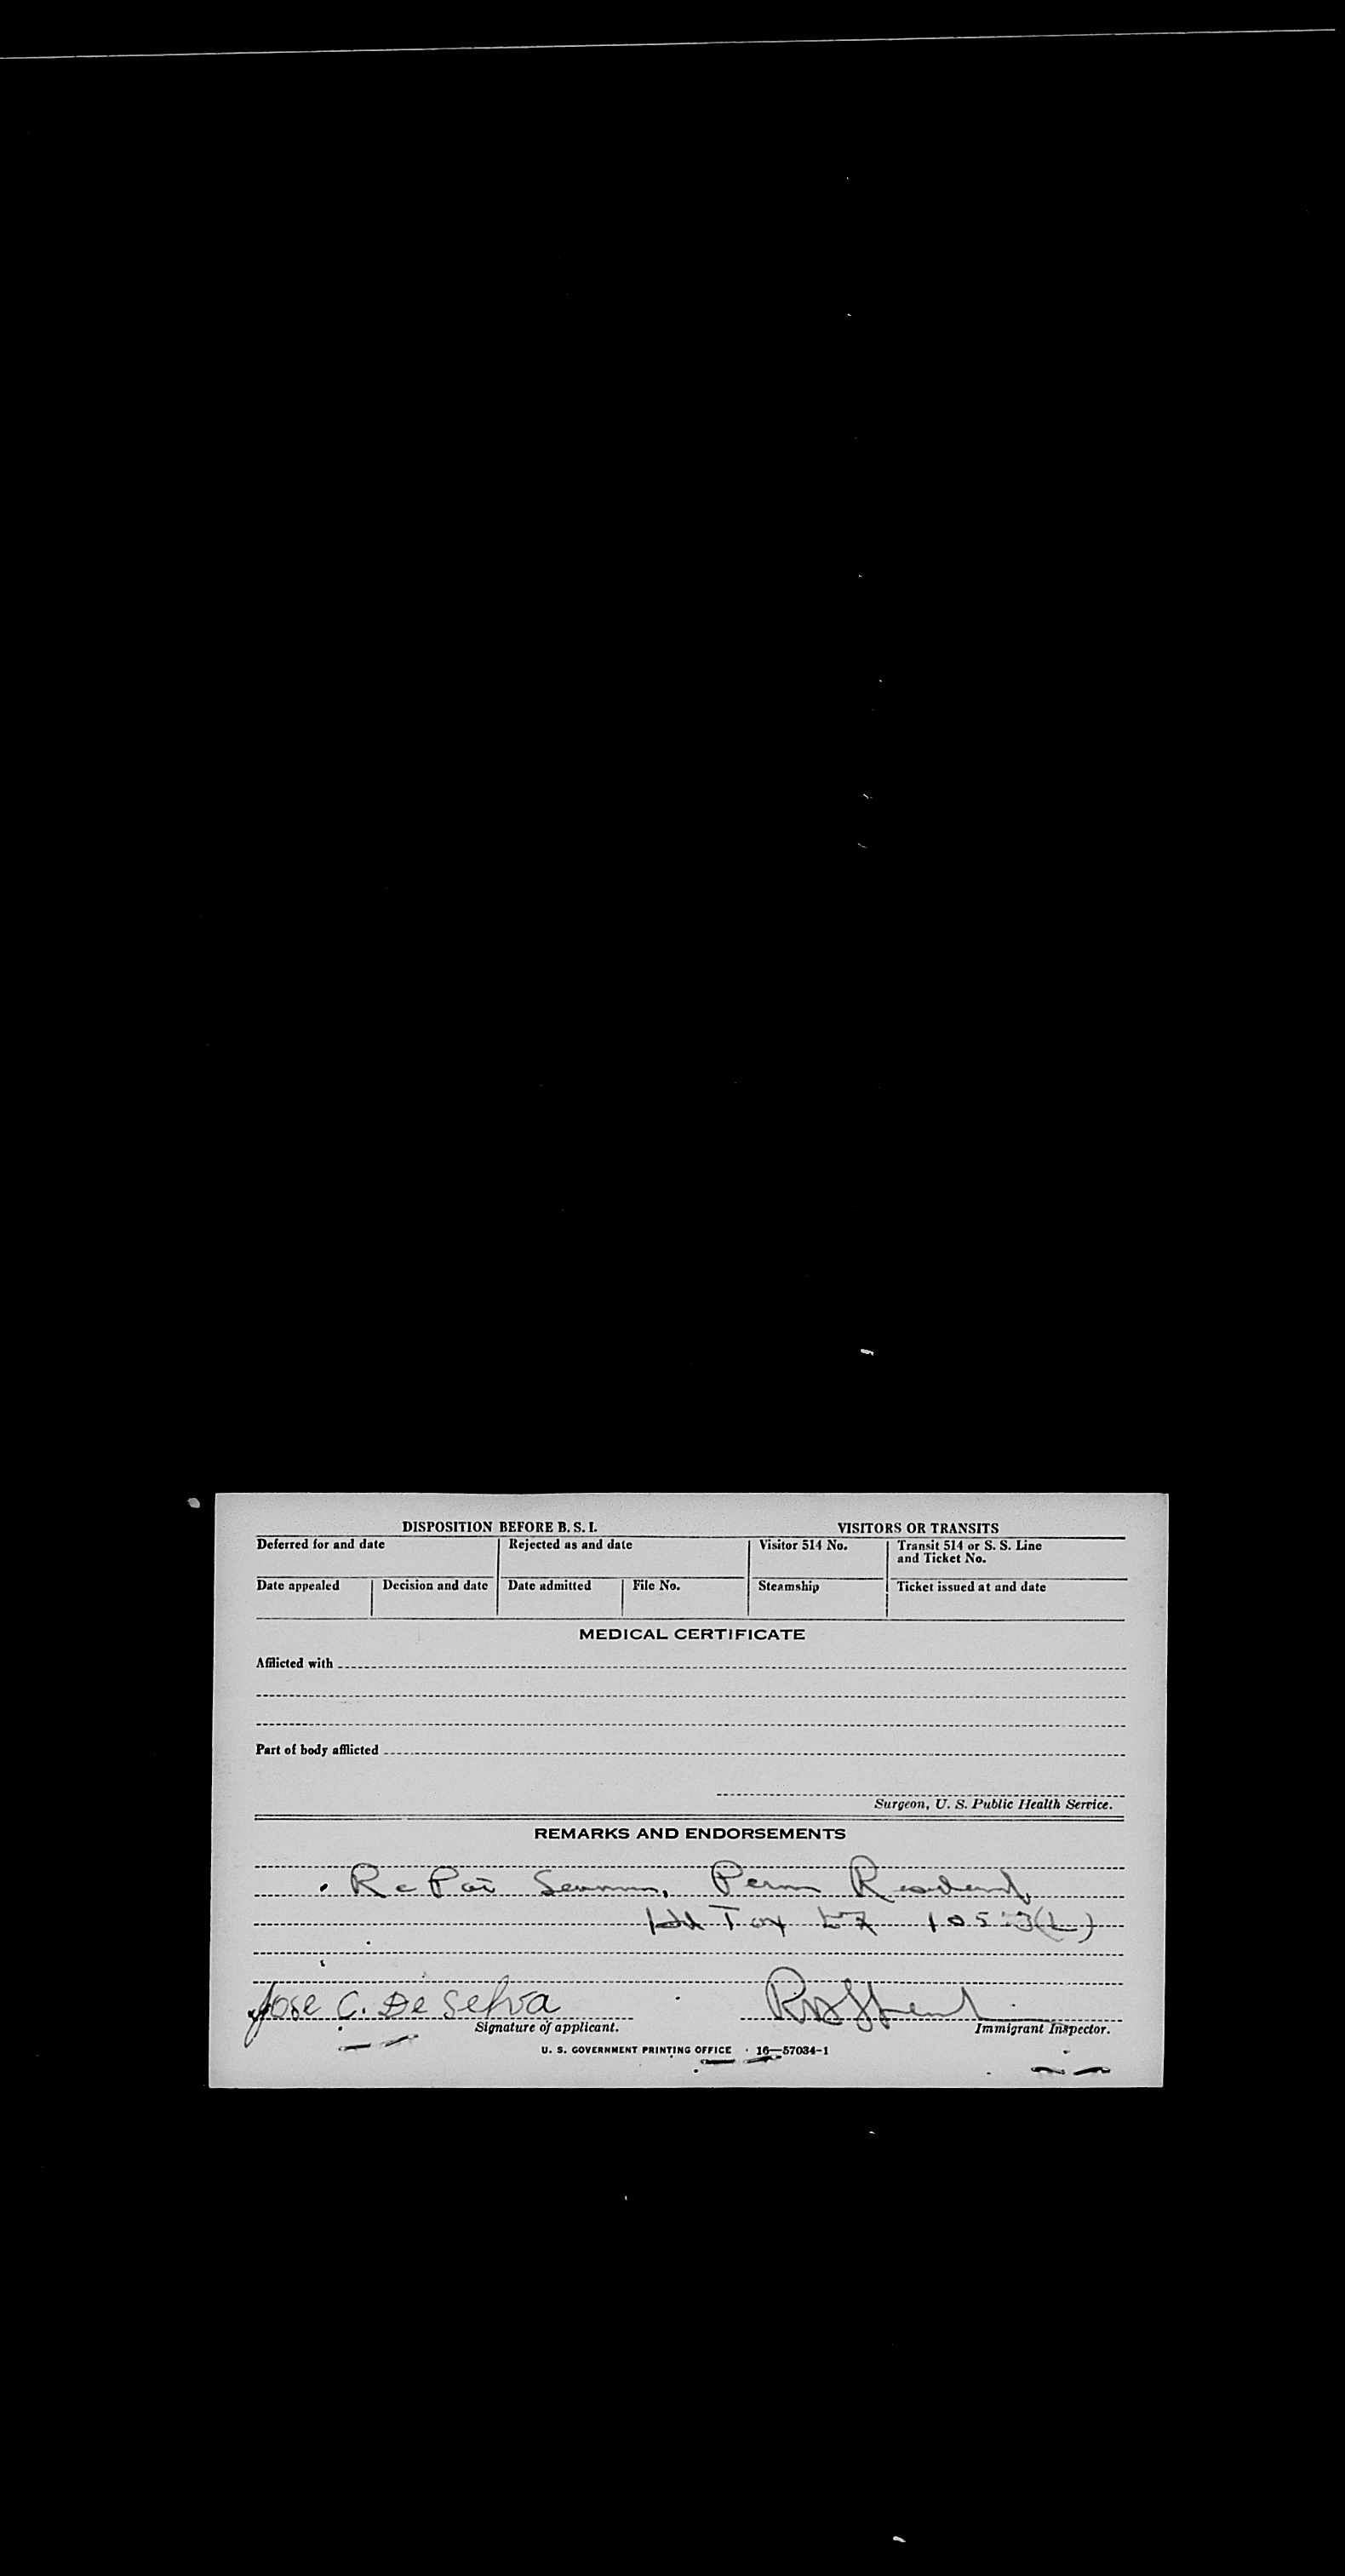 DISPOSITION BEFORE B. S. I.
VISITORS OR TRANSITS
Deferred for and date
Rejected as and date
Visitor 514 No.
Transit 514 or S. S. Line
and Ticket No.
Date appealed
Decision and date
Date admitted
File No.
Steamship
Ticket issued at and date
MEDICAL CERTIFICATE
Afflicted with
Part of body afflicted
Surgeon, U. S. Public Health Service.
REMARKS AND ENDORSEMENTS
RePat Seaman, Perm Resident,
Hd Tax
Jose C. De Selva
Signature of applicant.
Immigrant Inspector.
U. S. GOVERNMENT PRINTING OFFICE 16—57034-1